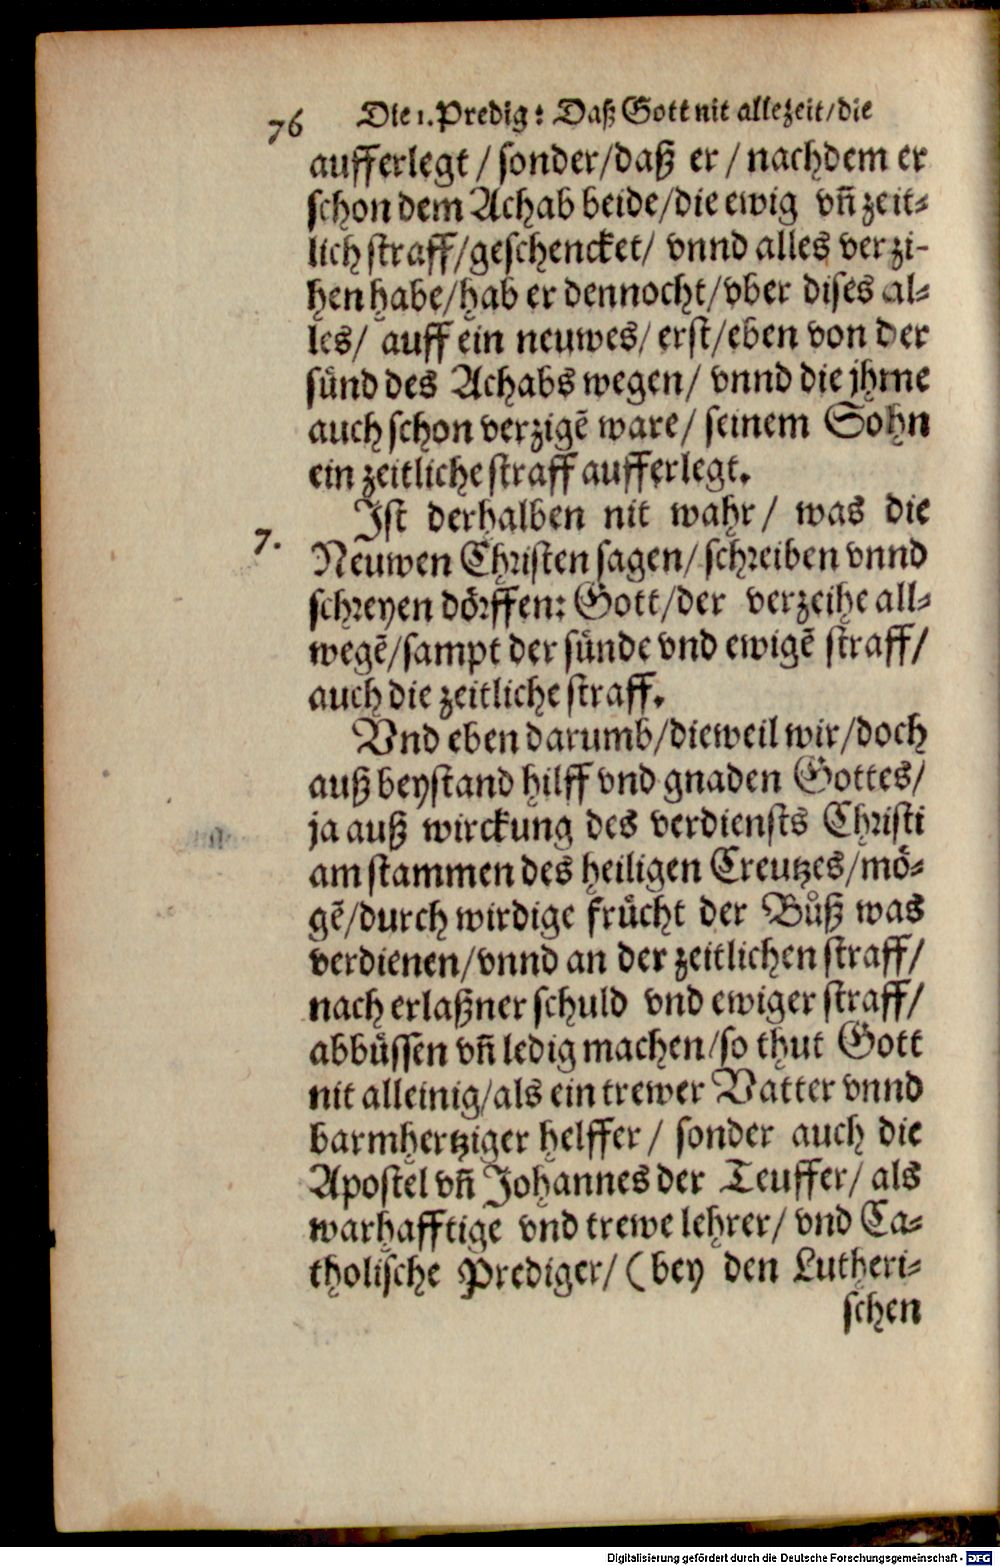 76 Die 1. Predig: Daß Gott nit allezeit/die
aufferlegt / sonder/daß er / nachdem er
schon dem Achab beide/die ewig vñ zeit⸗
lich straff/geschencket/ vnnd alles verzi-
hen habe/hab er dennocht/vber dises al⸗
les/ auff ein neuwes/ erst/eben von der
sünd des Achabs wegen/ vnnd die jhme
auch schon verzigẽ ware/ seinem Sohn
ein zeitliche straff aufferlegt.
Ist derhalben nit wahr/ was die
7. Neuwen Christen sagen/ schreiben vnnd
schreyen dörffen: Gott/der verzeihe all⸗
wegẽ/sampt der sünde vnd ewigẽ straff/
auch die zeitliche straff.
Vnd eben darumb/dieweil wir/doch
auß beystand hilff vnd gnaden Gottes/
ja auß wirckung des verdiensts Christi
am stammen des heiligen Creutzes/mö⸗
gẽ/durch wirdige frücht der Bůß was
verdienen/vnnd an der zeitlichen straff/
nach erlaßner schuld vnd ewiger straff/
abbüssen vñ ledig machen/so thut Gott
nit alleinig/als ein trewer Vatter vnnd
barmhertziger helffer / sonder auch die
Apostel vñ Johannes der Teuffer/ als
warhafftige vnd trewe lehrer/ vnd Ca⸗
tholische Prediger/ (bey den Lutheri⸗
schen
Digitalisierung gefördert durch die Deutsche Forschungsgemeinschaft - DFG